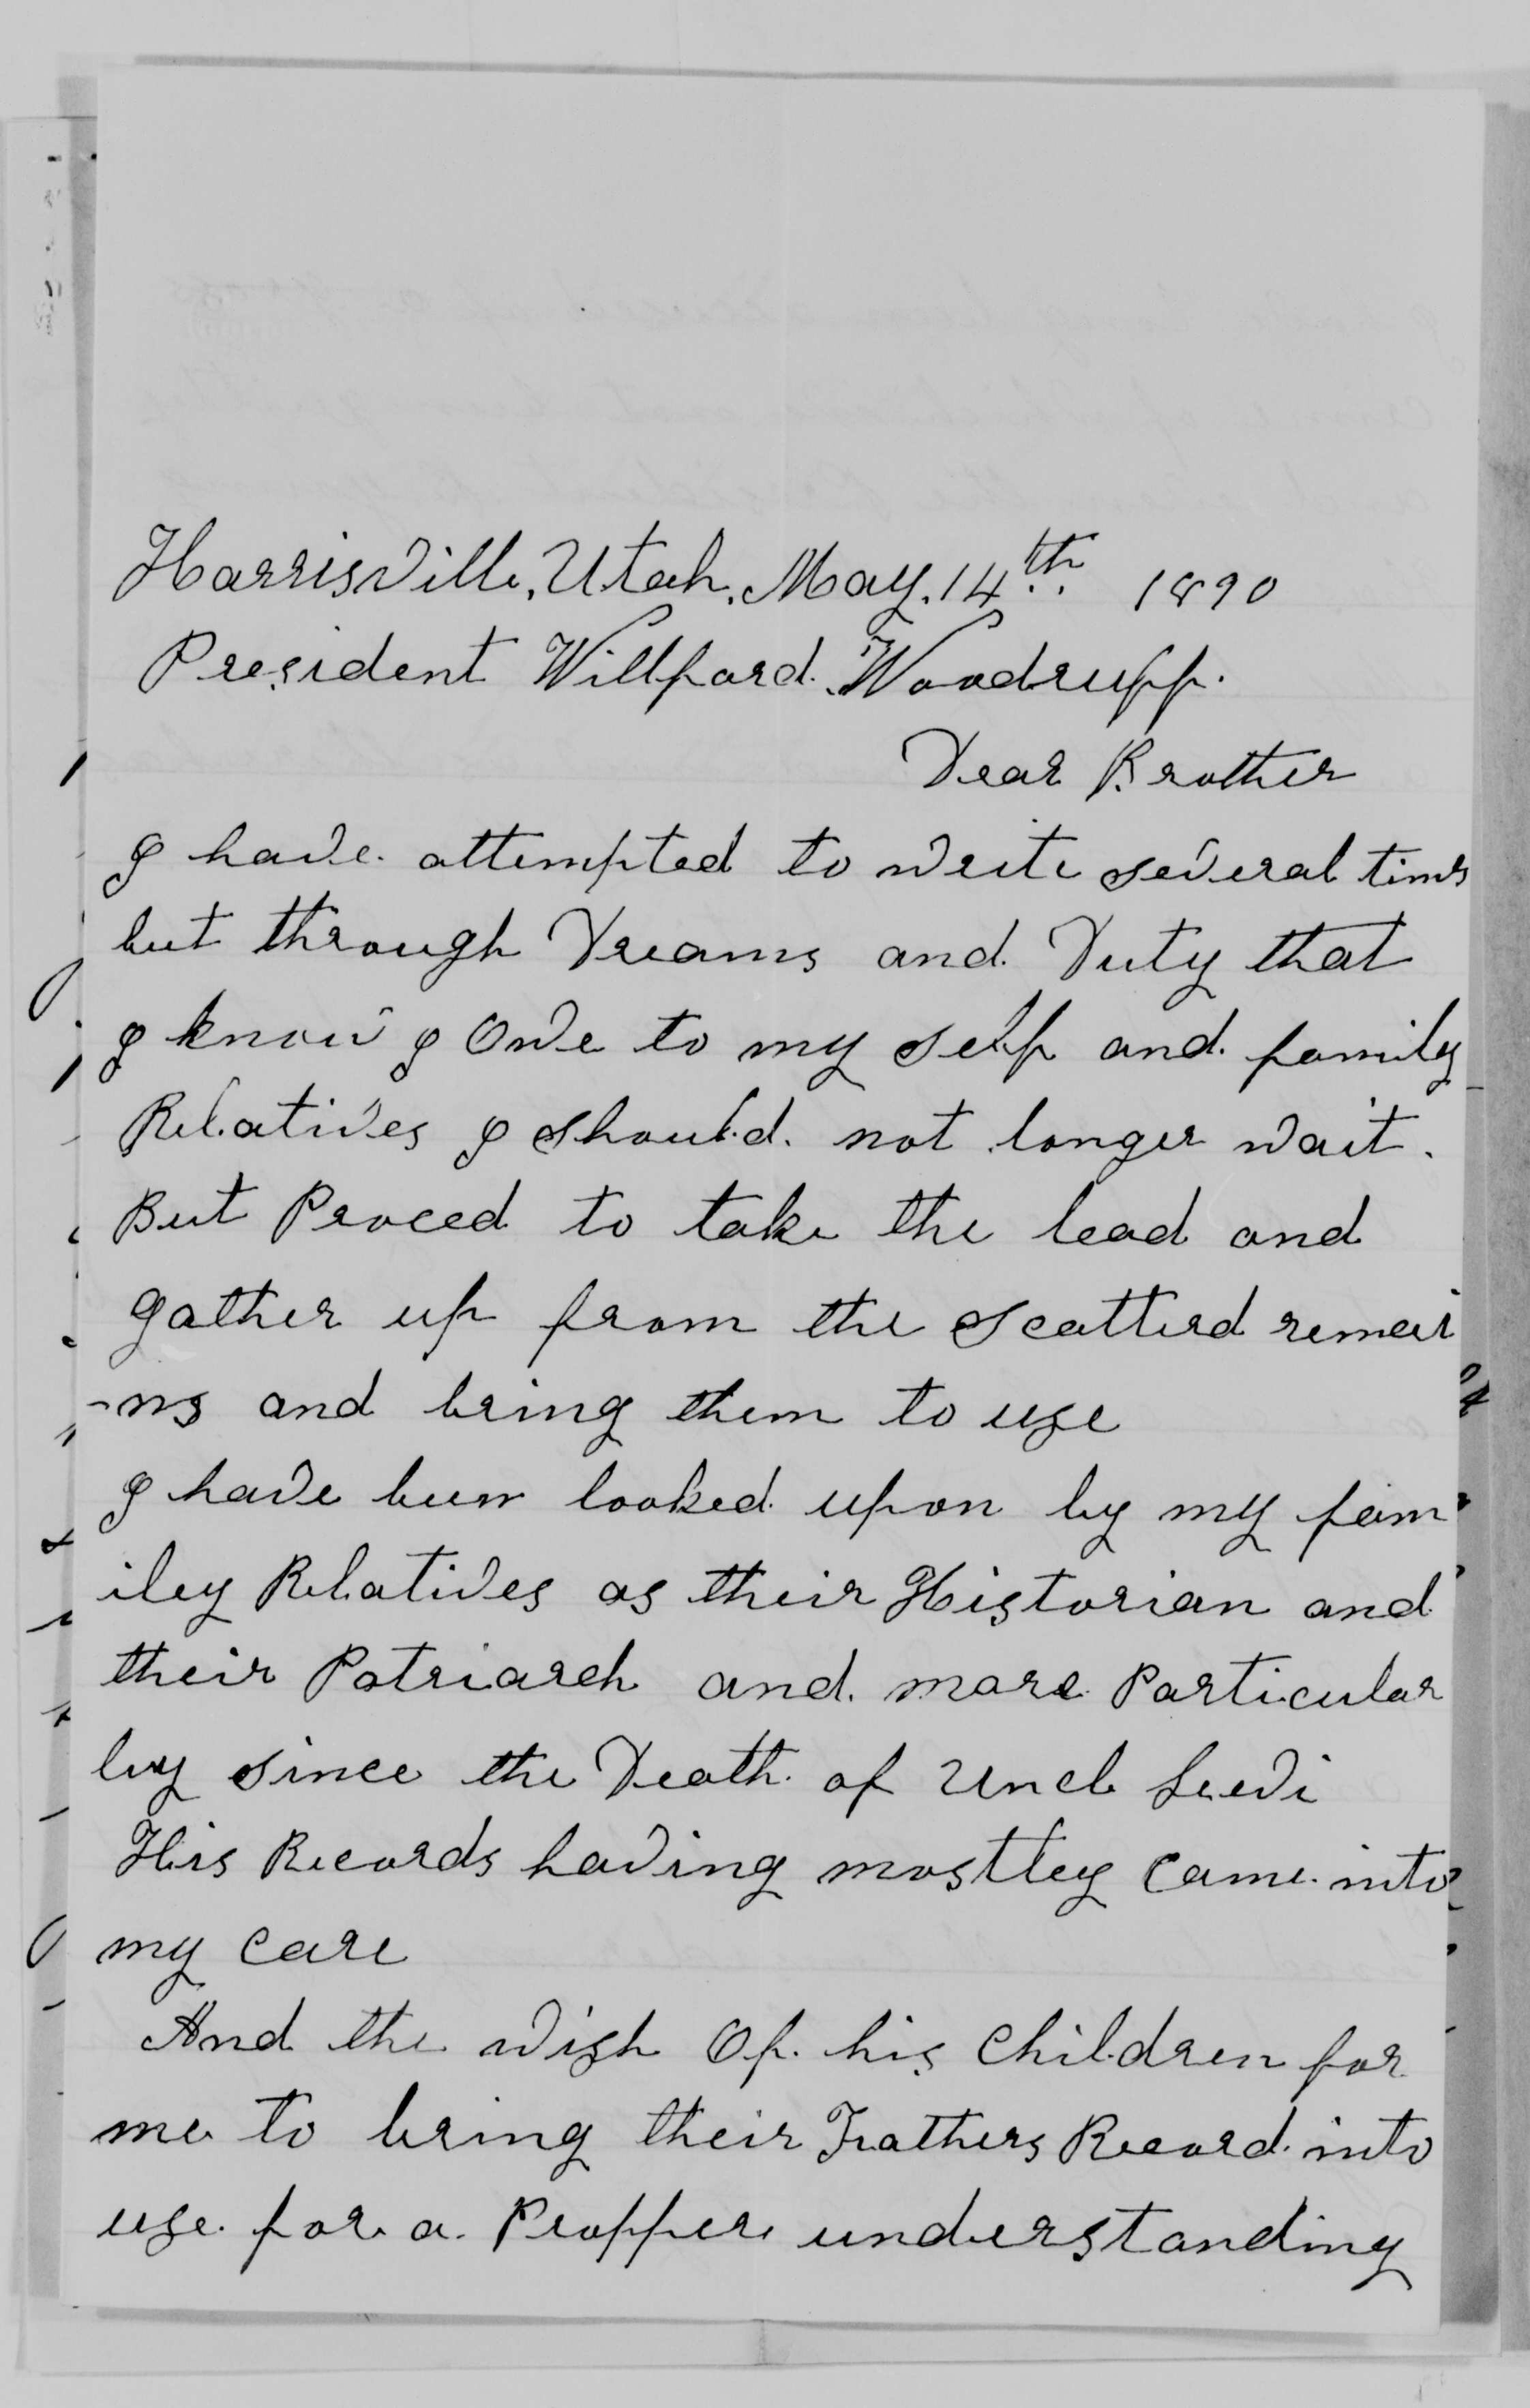 Harrisville, Utah, May. 14th 1890
President Willford Woodruff.
Dear Brother
I have attempted to write several times
but through Dreams and Duty that
I know I Owe to my self and family
Relatives I should not longer wait.
But Proceed to take the lead and
gather up from the scatterd remai
-ns and bring them to use
I have been looked upon by my fam
iley Relatives as their Historian and
their Patriarch and more Particular
ley since the Death of Uncle Levi
His Records having mostley came into
my care
And the wish Of his Children for
me to bring their Fathers Record into
use for a Propper understanding